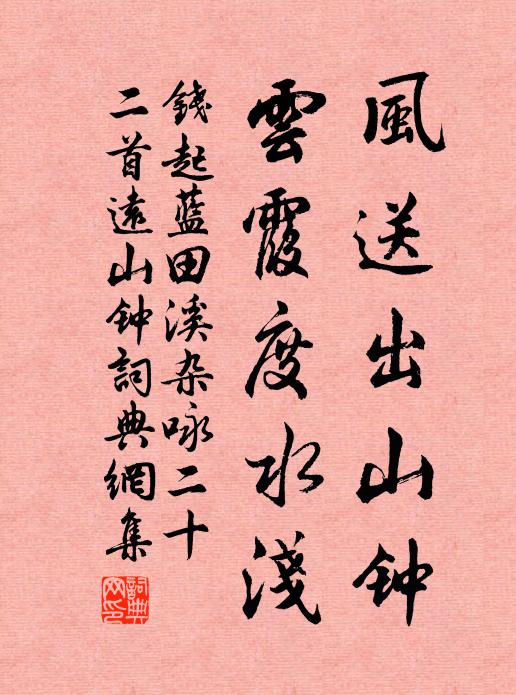 風送出山钟
雲霞度水淺
錢起藍田溪杂咏二十
二首遠山钟詞典網集